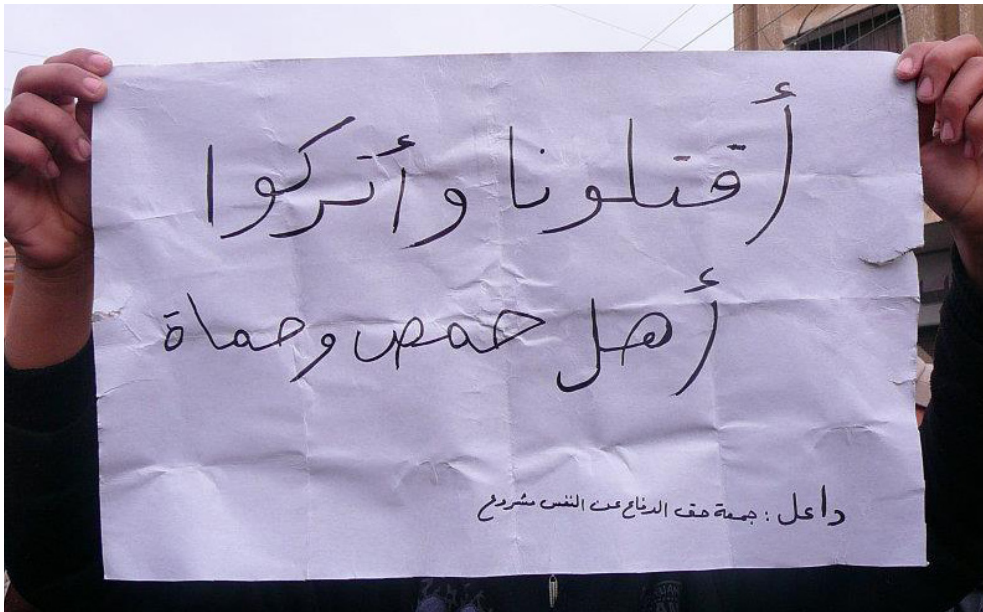 أقتلونا وأتركوا
أهل حمص وحماة
داعل : جمعة حق الدفاع عن النفس مشروع